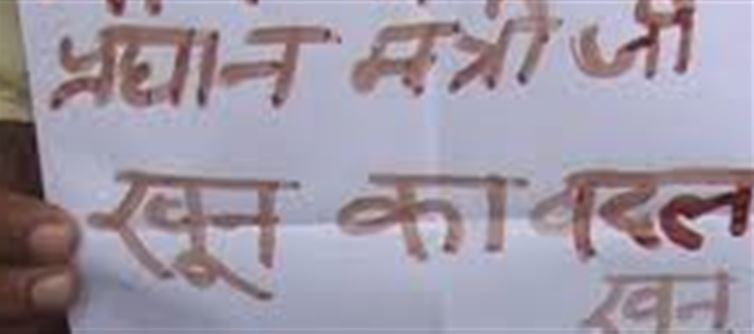 प्रधान मंत्री जी
खून का बदल
खून